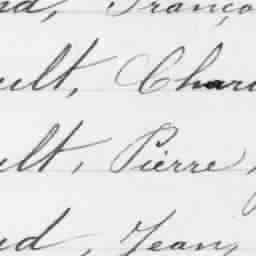 nd, Franço
ult, Char
ult, Pierre,
ud, Jean,